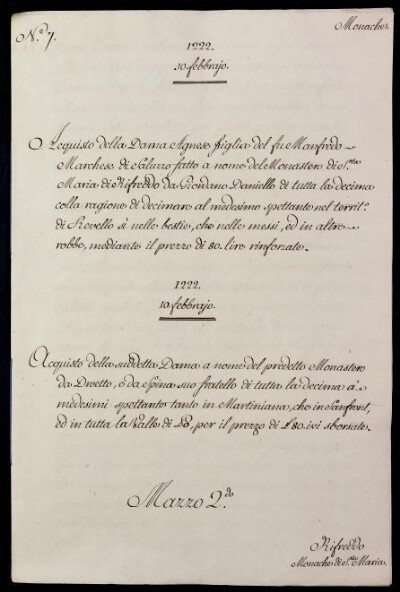 N.º 7.
Monache
1222.
10. febbrajo.
Acquisto della Dama Agnese figlia del fu Manfredo
Marchese di Saluzzo fatto a nome del Monastero di S.ta
Maria di Rifreddo da Giordano Daniello di tutta la decima
colla ragione di decimare al medesimo spettante nel territ.º
di Revello sì nelle bestie, che nelle messi, ed in altre
robbe, mediante il prezzo di 80. lire rinforzate.
1222.
10. febbrajo.
Acquisto della suddetta Dama a nome del predetto Monastero
da Droetto, e da Spina suo fratello di tutta la decima a'
medesimi spettante tanto in Martiniana, che in Sanfront,
ed in tutta la Valle di Pò, per il prezzo di £ 80. ivi sborsate.
Mazzo 2.do
Rifreddo
Monache di S.ta Maria.